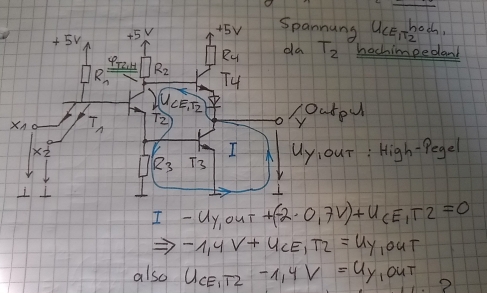 Spannung U_CE,T2 hoch,
da T2 hochimpedant
+5V
+5V
+5V
R1
φTCH
R2
R4
T4
U_CE,T2
T2
X1
X2
T1
R3
T3
I
Output
Y
U_Y,OUT : High-Pegel
I -U_Y,OUT +(-2·0,7V)+U_CE,T2 =0
⇒ -1,4V + U_CE,T2 = U_Y,OUT
also U_CE,T2 -1,4V = U_Y,OUT